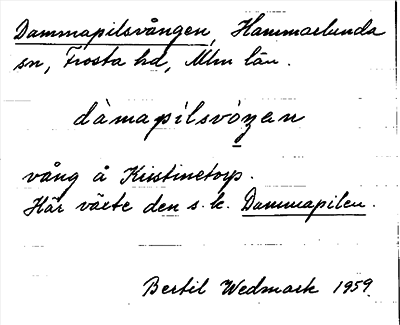 Dammapilsvången, Hammarlunda
sn, Frosta hd, Mlm län.
dàmapílsvóŋen
vång å Kristinetorp.
Här växte den s.k. Dammapilen.
Bertil Wedmark 1959.